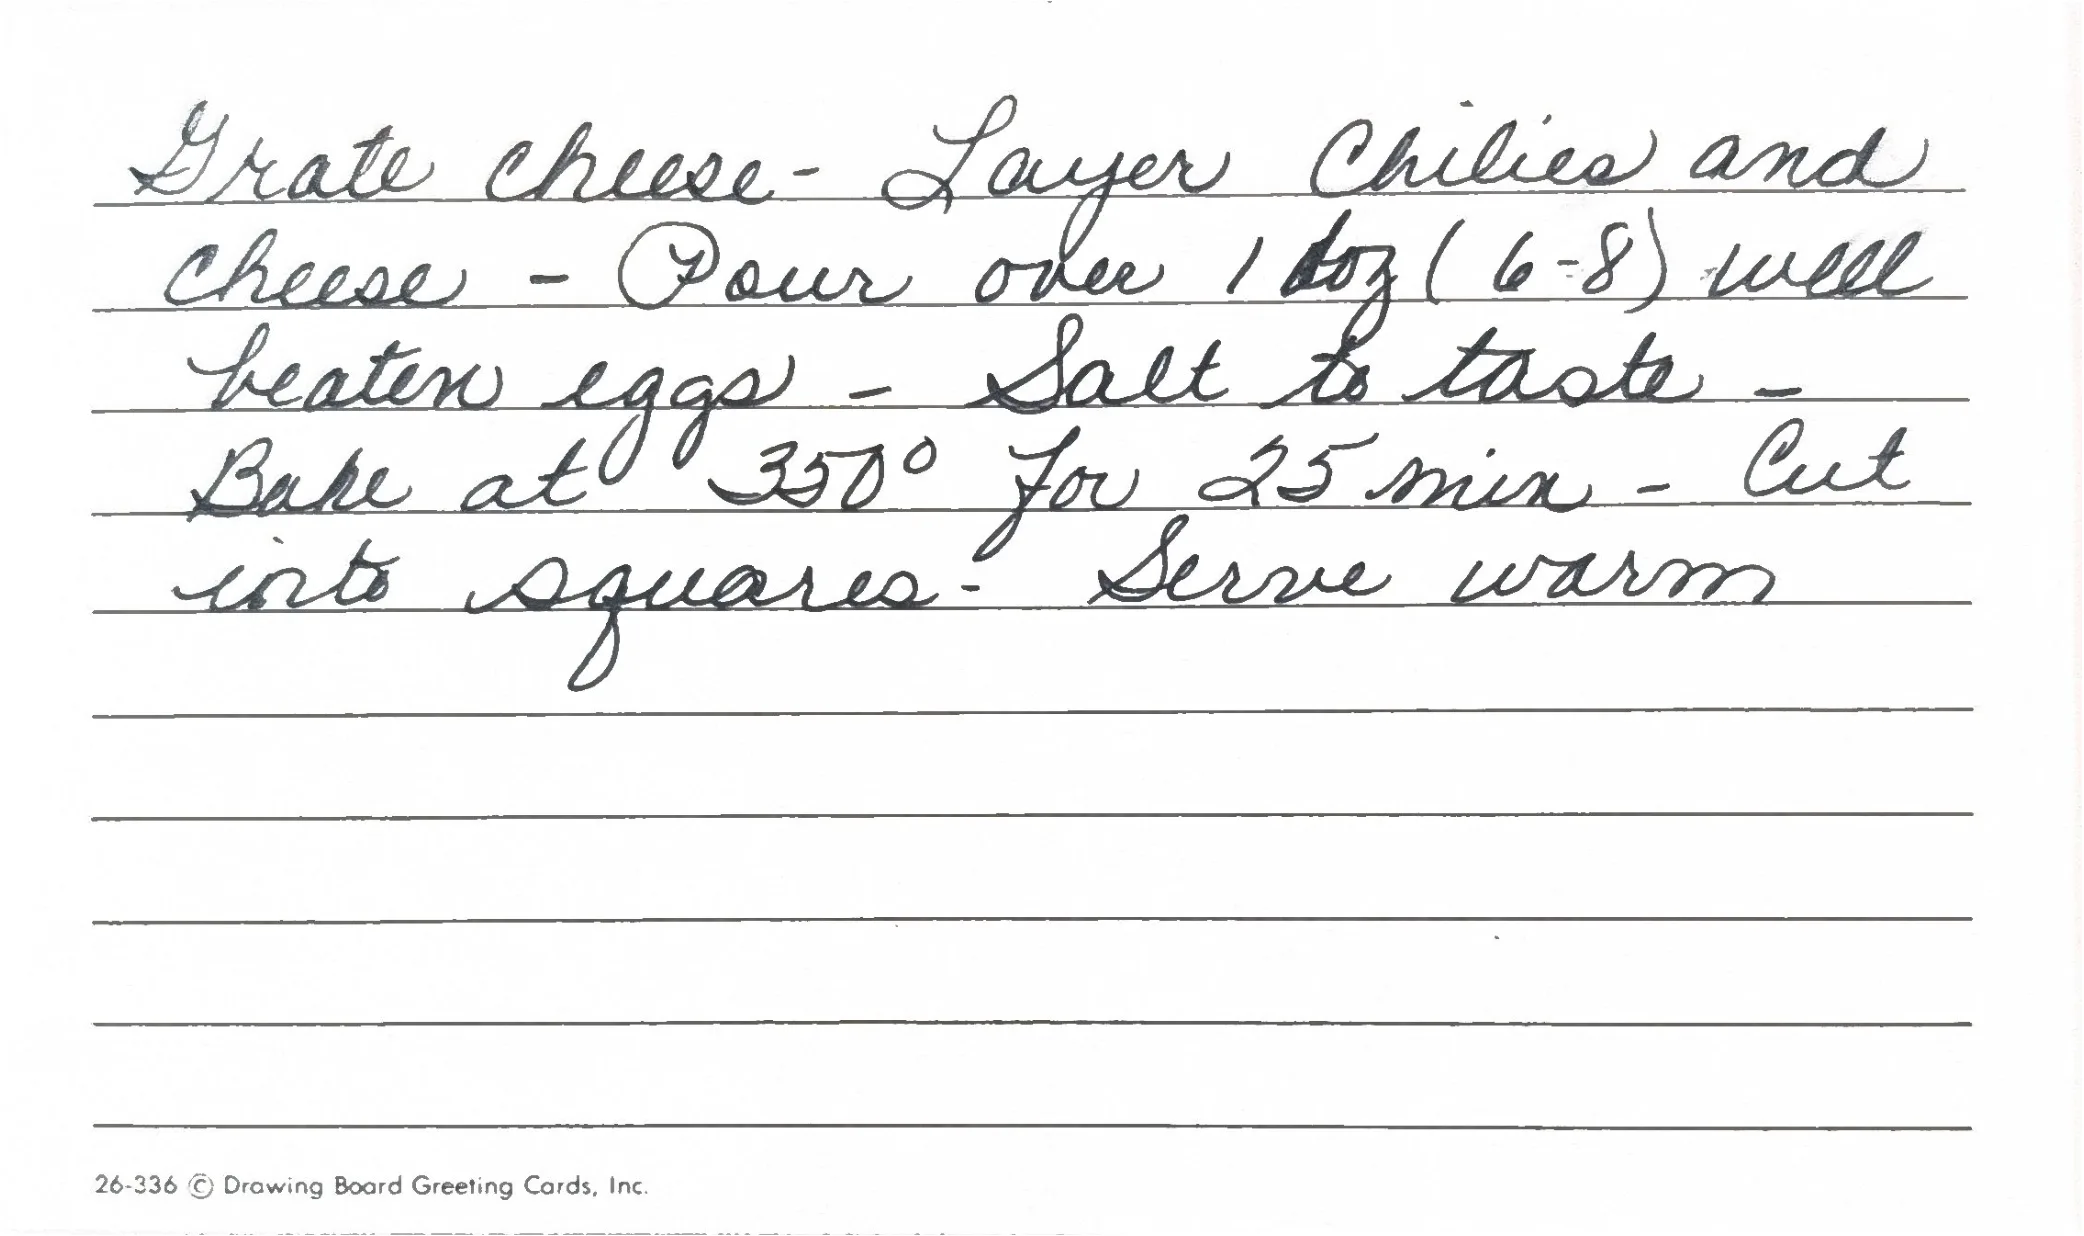 Grate cheese - Layer Chilies and
cheese - Pour over 1 doz (6-8) well
beaten eggs - Salt to taste -
Bake at 350° for 25 min - Cut
into squares - Serve warm
26-336 © Drawing Board Greeting Cards, Inc.